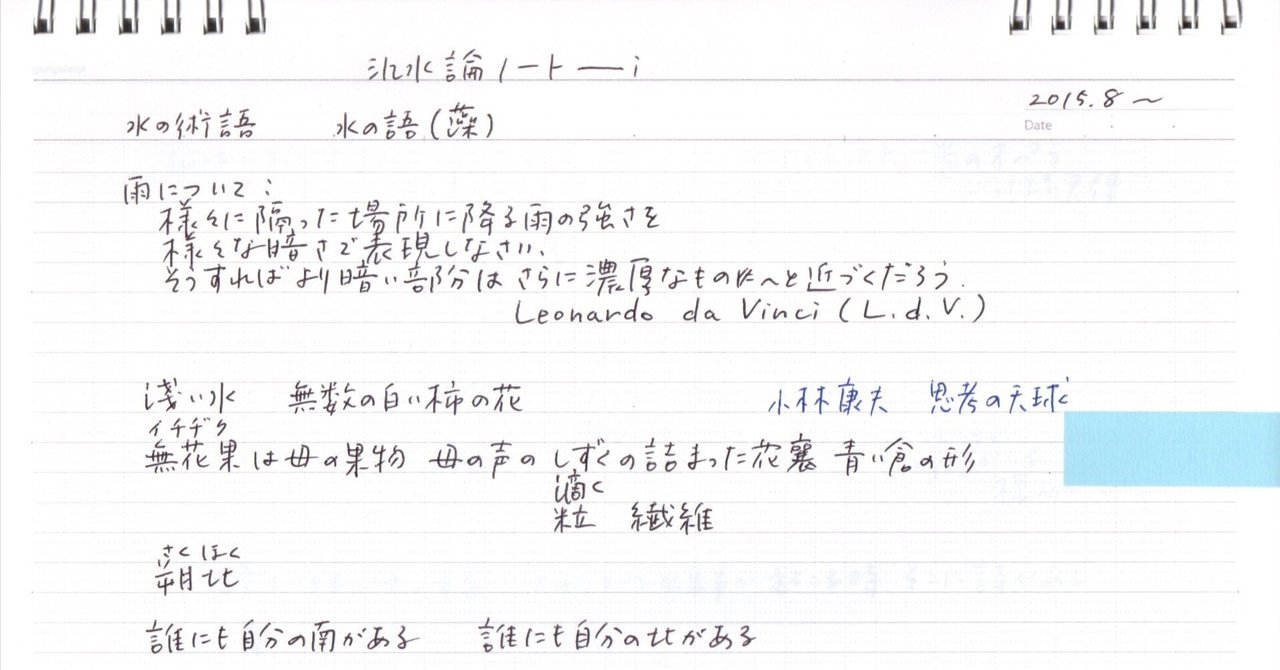 氾水論ノート — i
2015.8〜
Date
水の術語 水の語(藻)
雨について:
様々に隔った場所に降る雨の強さを
様々な暗さで表現しなさい.
そうすればより暗い部分はさらに濃厚なものへと近づくだろう.
Leonardo da Vinci (L.d.V.)
浅い水 無数の白い柿の花 小林康夫 思考の天球
イチヂク
無花果は母の果物 母の声のしずくの詰まった花嚢 青い倉の形
滴く
粒 繊維
さくほく
朔北
誰にも自分の南がある 誰にも自分の北がある